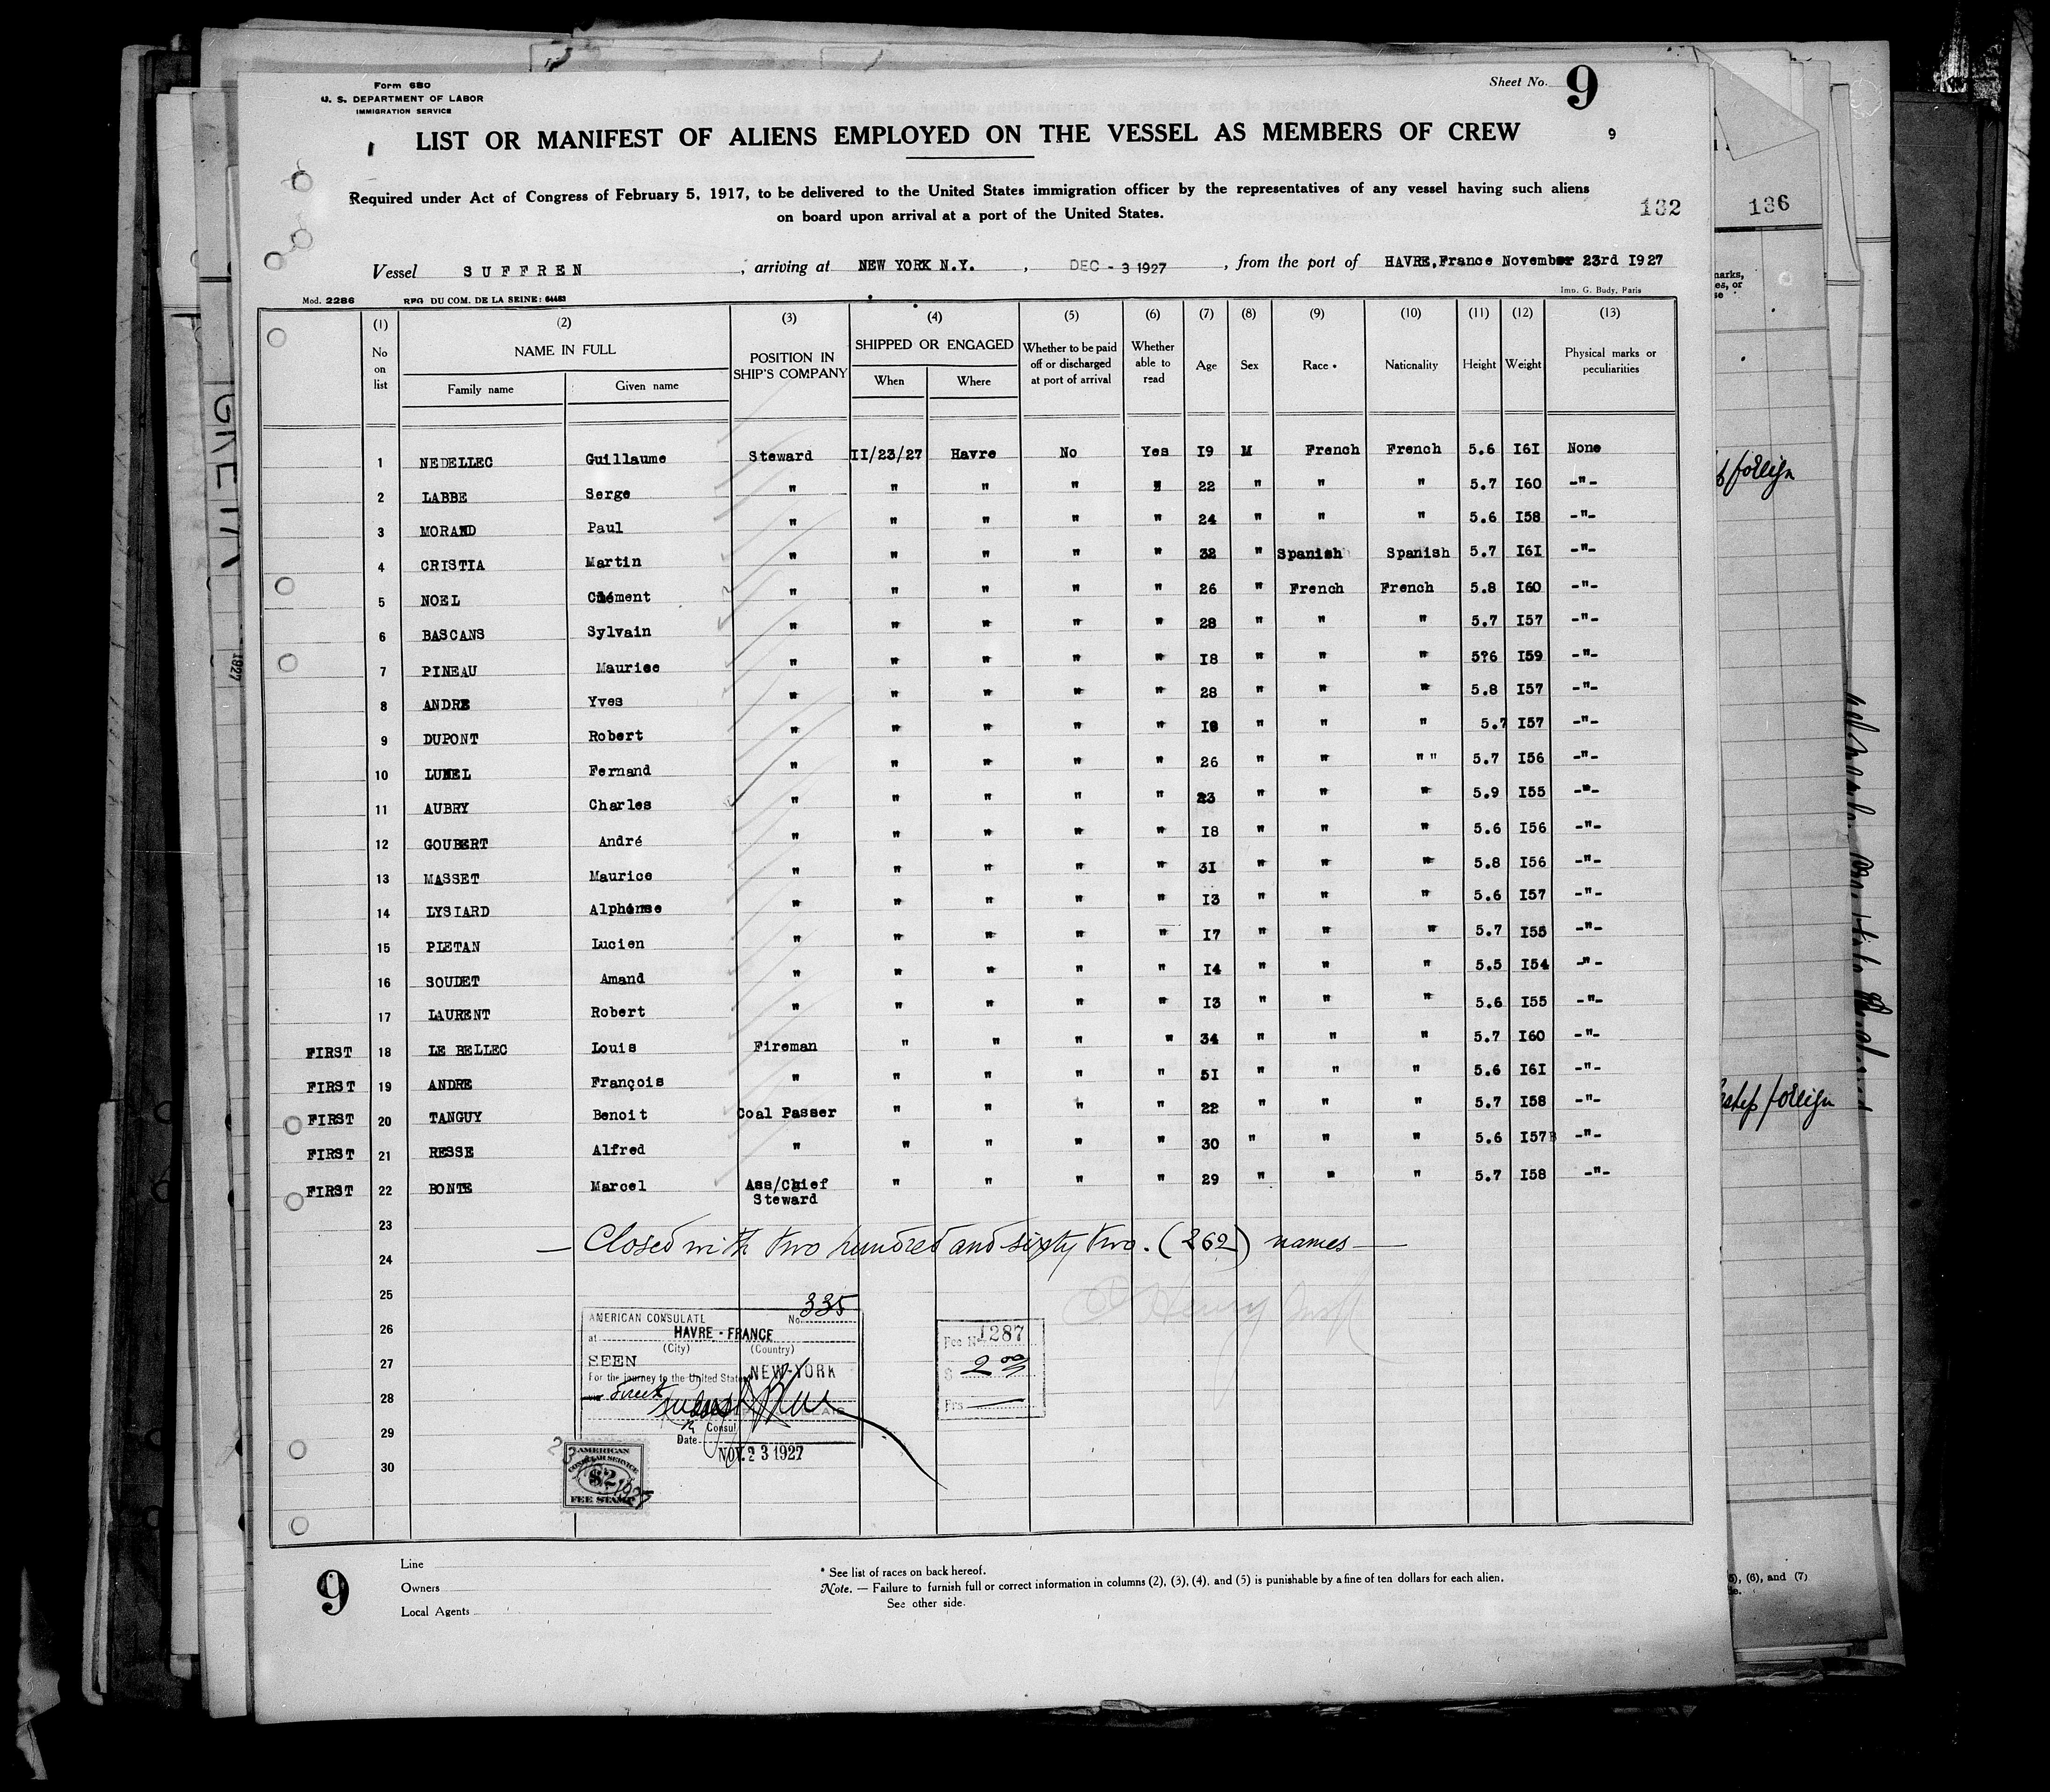 Form 680
U. S. DEPARTMENT OF LABOR
IMMIGRATION SERVICE
Sheet No. 9
LIST OR MANIFEST OF ALIENS EMPLOYED ON THE VESSEL AS MEMBERS OF CREW
9
Required under Act of Congress of February 5, 1917, to be delivered to the United States immigration officer by the representatives of any vessel having such aliens
on board upon arrival at a port of the United States.
132
136
Vessel SUFFREN , arriving at NEW YORK N.Y. , DEC - 3 1927 , from the port of HAVRE,France November 23rd I927
Mod. 2286 REG DU COM. DE LA SEINE: 64483
Imp. G. Budy, Paris
(1) (2) (3) (4) (5) (6) (7) (8) (9) (10) (11) (12) (13)
No on list NAME IN FULL POSITION IN SHIP'S COMPANY SHIPPED OR ENGAGED Whether to be paid off or discharged at port of arrival Whether able to read Age Sex Race * Nationality Height Weight Physical marks or peculiarities
Family name Given name When Where
1 NEDELLEC Guillaume Steward II/23/27 Havre No Yes I9 M French French 5.6 I6I None
2 LABBE Serge " " " " " 22 " " " 5.7 I60 -"-
3 MORAND Paul " " " " " 24 " " " 5.6 I58 -"-
4 CRISTIA Martin " " " " " 32 " Spanish Spanish 5.7 I6I -"-
5 NOEL Clément " " " " " 26 " French French 5.8 I60 -"-
6 BASCANS Sylvain " " " " " 28 " " " 5.7 I57 -"-
7 PINEAU Maurice " " " " " I8 " " " 5?6 I59 -"-
8 ANDRE Yves " " " " " 28 " " " 5.8 I57 -"-
9 DUPONT Robert " " " " " " " " 5.7 I57 -"-
10 LUNEL Fernand " " " " " 26 " " " " 5.7 I56 -"-
11 AUBRY Charles " " " " " 23 " " " 5.9 I55 -"-
12 GOUBERT André " " " " " I8 " " " 5.6 I56 -"-
13 MASSET Maurice " " " " " 3I " " " 5.8 I56 -"-
14 LYSIARD Alphonse " " " " " I3 " " " 5.6 I57 -"-
15 PLETAN Lucien " " " " " I7 " " " 5.7 I55 -"-
16 SOUDET Amand " " " " " I4 " " " 5.5 I54 -"-
17 LAURENT Robert " " " " " I3 " " " 5.6 I55 -"-
FIRST 18 LE BELLEC Louis Fireman " " " " 34 " " " 5.7 I60 -"-
FIRST 19 ANDRE François " " " " " 5I " " " 5.6 I6I -"-
FIRST 20 TANGUY Benoit Coal Passer " " " " 22 " " " 5.7 I58 -"-
FIRST 21 RESSE Alfred " " " " " 30 " " " 5.6 I57 -"-
FIRST 22 BONTE Marcel Ass/Chief Steward " " " " 29 " " " 5.7 I58 -"-
23
— Closed with two hundred and sixty two. (262) names —
24
25
26
27
28
29
30
AMERICAN CONSULATE No. 335
at HAVRE - FRANCE
(City) (Country)
SEEN
For the journey to the United States NEW-YORK
direct
Consul
Date NOV. 23 1927
Fee No 1287
$ 2 00
Frs
AMERICAN
CONSULAR SERVICE
$2
FEE STAMP
1927
9
Line
Owners
Local Agents
* See list of races on back hereof.
Note. — Failure to furnish full or correct information in columns (2), (3), (4), and (5) is punishable by a fine of ten dollars for each alien.
See other side.
foreign
foreign
(6), and (7)